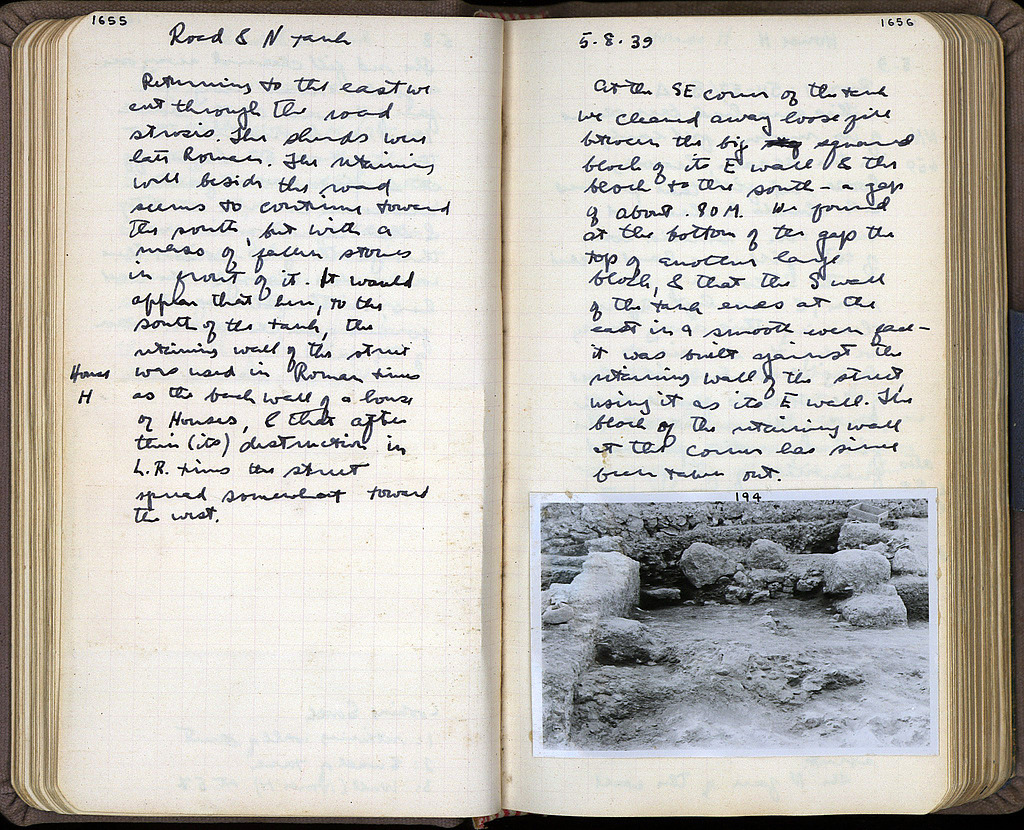 1655
Road & N tank
Returning to the east we
cut through the road
strosis. The sherds were
late Roman. The retaining
wall beside the road
seems to continue toward
the south, but with a
mass of fallen stones
in front of it. It would
appear that here, to the
south of the tank, the
retaining wall of the street
House
was used in Roman times
H
as the back wall of a house
or Houses, & that after
their (its) destruction in
L.R. times the street
spread somewhat toward
the west.
1656
5.8.39
At the SE corner of the tank
we cleared away loose fill
between the big squared
block of its E wall & the
block to the south – a gap
of about .80 M. We found
at the bottom of the gap the
top of another large
block, & that the S wall
of the tank ends at the
east in a smooth even face –
it was built against the
retaining wall of the street,
using it as its E wall. The
block of the retaining wall
at the corner has since
been taken out.
194